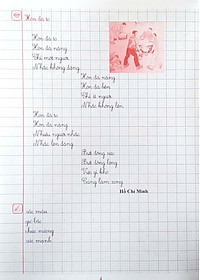 Hòn đá to
Hòn đá to
Hòn đá nặng
Chỉ một người
Nhấc không đặng
Hòn đá nặng
Hòn đá bền
Chỉ ít người
Nhấc không lên
Hòn đá to
Hòn đá nặng
Nhiều người nhấc
Nhấc lên đặng
Biết đồng sức
Biết đồng lòng
Việc gì khó
Cũng làm xong
Hồ Chí Minh
sức mạnh